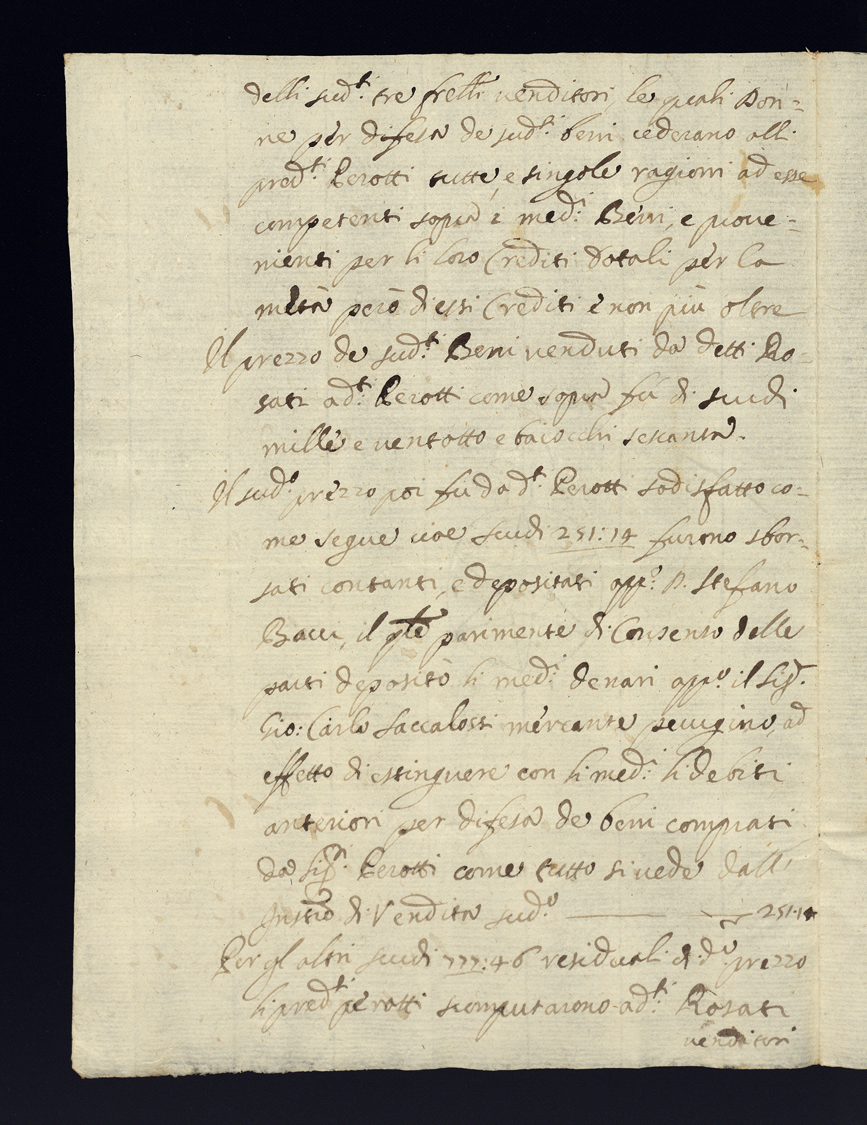 delli sud.ti tre frelli venditori, le quali Don=
ne per difesa de sud.ti beni cederano alli
pred.ti Perotti tutte, e singole ragioni ad esse
competenti sopra i med.i Beni, e prove=
nienti per li loro Crediti dotali per la
metà però di essi Crediti e non più oltre
Il prezzo de sud.ti Beni venduti da detti Ro=
sati ad.ti Perotti come sopra fù di scudi
mille e ventotto e baiocchi sesanta.
Il sud.o prezzo poi fù da d.ti Perotti sodisfatto co=
me segue cioe scudi 251:14 furono sbor=
sati contanti, e depositati app.o D. Stefano
Bacci, il q̃le parimente di Consenso delle
parti depositò li med.i denari app.o il Sig.r
Gio: Carlo Saccalossi mercante perugino, ad
effetto di estinguere con li med.i li debiti
anteriori per difesa de beni comprati
da Sig.ri Perotti come tutto si vede dall'
Instro di Vendita sud.o — 251:14
Per gl'altri scudi 777:46 residuali di d.o prezzo
li pred.ti perotti scomputarono ad.ti Rosati
venditori